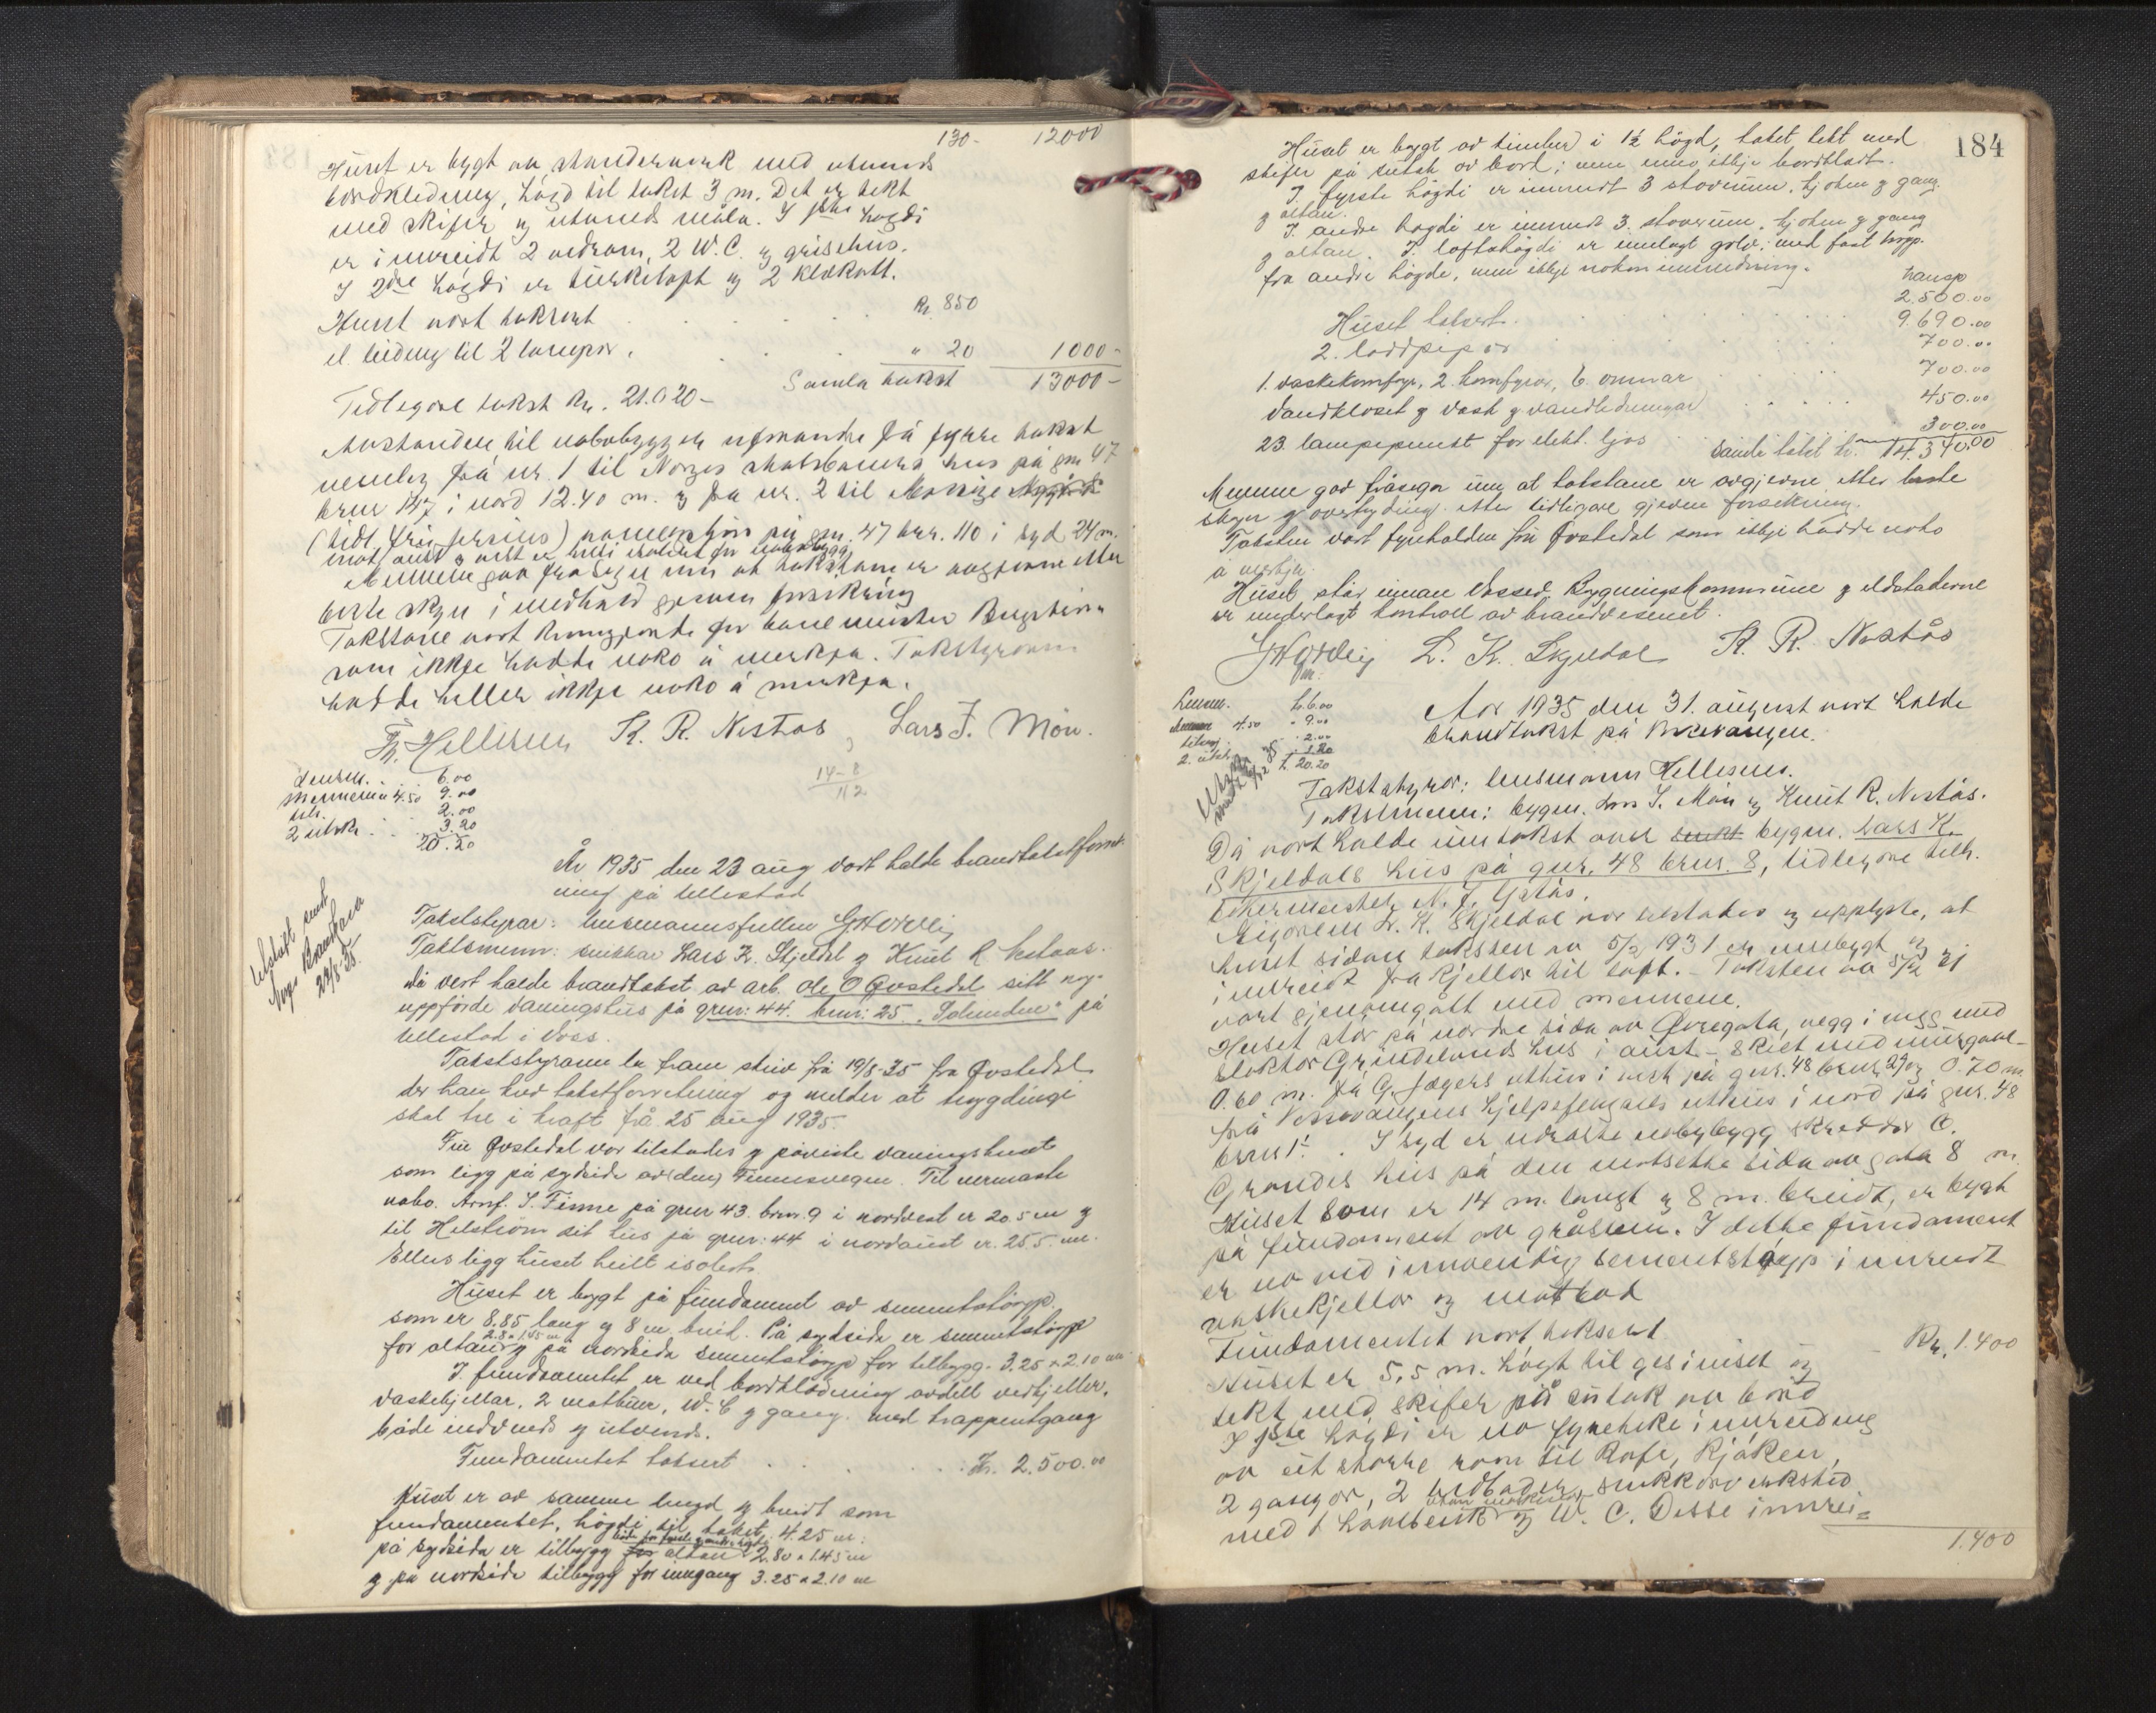 130- 12000
Huset er bygt av standerverk med utvendes
bordkledning, högd til taket 3 m. Det er tekt
med skifer og utvendes måla. I 1ste högdi
er innreidt 2 vedrom, 2 W.C. og grisehus.
I 2dre högdi er turkeloft og 2 klekott.
Huset vart taksert . . . . . Kr. 850
el. leidning til 2 lampor . . . " 20 1000-
Samla takst 13000-
Tidlegare takst Kr. 21.020-
Avstanden til nabobyggjer uforandra frå fyrre takst
nemleg frå nr. 1 til Norges hus på gnr 47
brnr 147 i nord 12.40 m. og fra nr. 2 til
(tidl. ) på gnr. 47 bnr. 110 i syd 24 m.
mot aust og vest er heilt isolert for nabobygg
Mennene gav frasegn um at takstane er avgjevne etter
beste skyn i medhald gjeven forsikring
Takstane vart kunngjorde for banemeister
som ikkje hadde noko å merkja. Takstgjevarane
hadde heller ikkje noko å merkja.
Hellesnes K. R. Nestås, Lars J. Møn.
Lensm. . . 6.00
Mennene á 4.50 9.00
. . 2.00
2 utskr. . . 3.20
20.20
14-8
112
År 1935 den 23 aug vart halde brandtakstforret-
ning på Ullestad
Utskrift sendt
Brandkasse
29/8-35.
Takststyrar: lensmannsfullm G Horvei
Takstmenn: snikkar Lars K. Skjeldal og Knut R Nestaas.
då vert halde brandtakst av arb. Ole O Qvstedal sitt ny-
uppförde vaaningshus på gnr: 44. bnr: 25 "Solenden" på
Ullestad i Voss.
Takststyraren la fram skriv frå 19/8-35 fra Qvstedal
der han krev takstforretning og melder at trygdingi
skal tre i kraft frå 25 aug 1935.
Qvstedal var tilstades og påviste vaningshuset
som ligg på sydside av (den) Finnesvegen. Til nermaste
nabo. Arnf. S. Finne på gnr 43. bnr. 9 i nordvest er 20.5 m og
til Helström sit hus på gnr: 44 i nordaust er 25.5. m.
Ellers ligg huset heilt isolert.
Huset er bygt på fundament av sementstöyp
som er 8.85 lang og 8 m breid. På sydsida er sementstöyp
for altan 2.8 x 1.45 m og på nordsida sementstöyp for tilbygg. 3.25 x 2.10 m
I fundamentet er ved bordklædning avdelt vedkjeller,
vaskekjellar, 2 matbuer, W.C og gang. med trappeutgang
både indvends og utvends.
Fundamentet taksert . . . . . Kr. 2.500.00
Huset er av samme lengd og breidt som
fundamentet, högdi til taket 4.25 m.
på sydsida er tilbygg altan både for fyrste og andre högde 2.80 x 1.45 m
og på nordside tilbygg for inngang 3.25 x 2.10 m
184
Huset er bygt av timber i 1½ högd, taket tekt med
skifer på sutak av bord; men enno ikkje bordkledt.
I. fyrste högdi er innreidt 3 stoverum, kjöken og gang.
og altan.
I. andre högdi er innreidt 3. stoverum, kjöken og gang
og altan. I. loftshögdi er innlagt golv, med fast trapp.
fra andre högde, men ikkje nokon innreidning.
Transp
2.500.00
Huset taksert . . . . . 9.690.00
2. loddpipor . . . . . 700.00
1. vaskekomfyr, 2. komfyrar, 6. omnar . . . 700.00
Vandkloset og vask og vandledningar . . . 450.00
23. lampepunkt for elekt. ljos . . . 300.00
Samla takst kr. 14.340.00
Mennene gav fråsegn um at takstane er avgjevne etter beste
skyn og overtyding etter tidlegare gjeven forsikring.
Taksten vart fyrehalden frå Qvstedal som ikkje hadde noko
å merkja.
Huset står innan Vossed. Bygningskommune og eldstaderne
er underlagt kontroll av brandvesenet.
G Horvei L. K. Skjeldal K. R. Nestås
fm.
Lensm. kr. 6.00
4.50 " 9.00
" 2.00
2. utskr. " 3.20
kr. 20.20
Aar 1935 den 31. august vart halde
brandtakst på Vossevangen.
Takststyrar: lensmann Hellesnes.
Takstmenn: bygm. Lars J. Møn og Knut R. Nestås.
Då vart halde umtakst over bygm. Lars K.
Skjeldals hus på gnr. 48 bnr. 8, tidlegare tilh.
N. J. Gjstås.
Eigaren L. K. Skjeldal var tilstades og upplyste, at
huset sidan taksten av 5/2 1931 er umbygt og
innreidt fra kjellar til loft. - Taksten av 5/2 31
vart gjennomgått med mennene.
Huset står på nordre sida av Övregata, vegg i vegg med
doktor Grindelands hus i aust - skilt med murgavl -
0.60 m. frå G. Jægers uthus i vest på gnr. 48 bnr. 29 og 0.70 m
frå Vossevangens hjelpefengsels uthus i nord på gnr. 48
bnr 1. . I syd er næraste nabobygg skreddar O.
Grandes hus på den motsette sida av gata 8 m.
Huset som er 14 m. langt og 8 m. breidt, er bygt
på fundament av gråstein. I dette fundament
er no ved innvendig sementstöyp innreidt
vaskekjellar og matbod
Fundamentet vart taksert Kr. 1.400
Huset er 5,5 m. högt til gesimset og
tekt med skifer på sutak av bord
I 1ste högdi er no fyrebils innreidning
av eit större rom til Kafe, Kjöken,
2 gangar, 2 vedboder, snikkarverkstad
med 1 hövelbenk utan maskiner og W. C. Desse innrei=
1.400